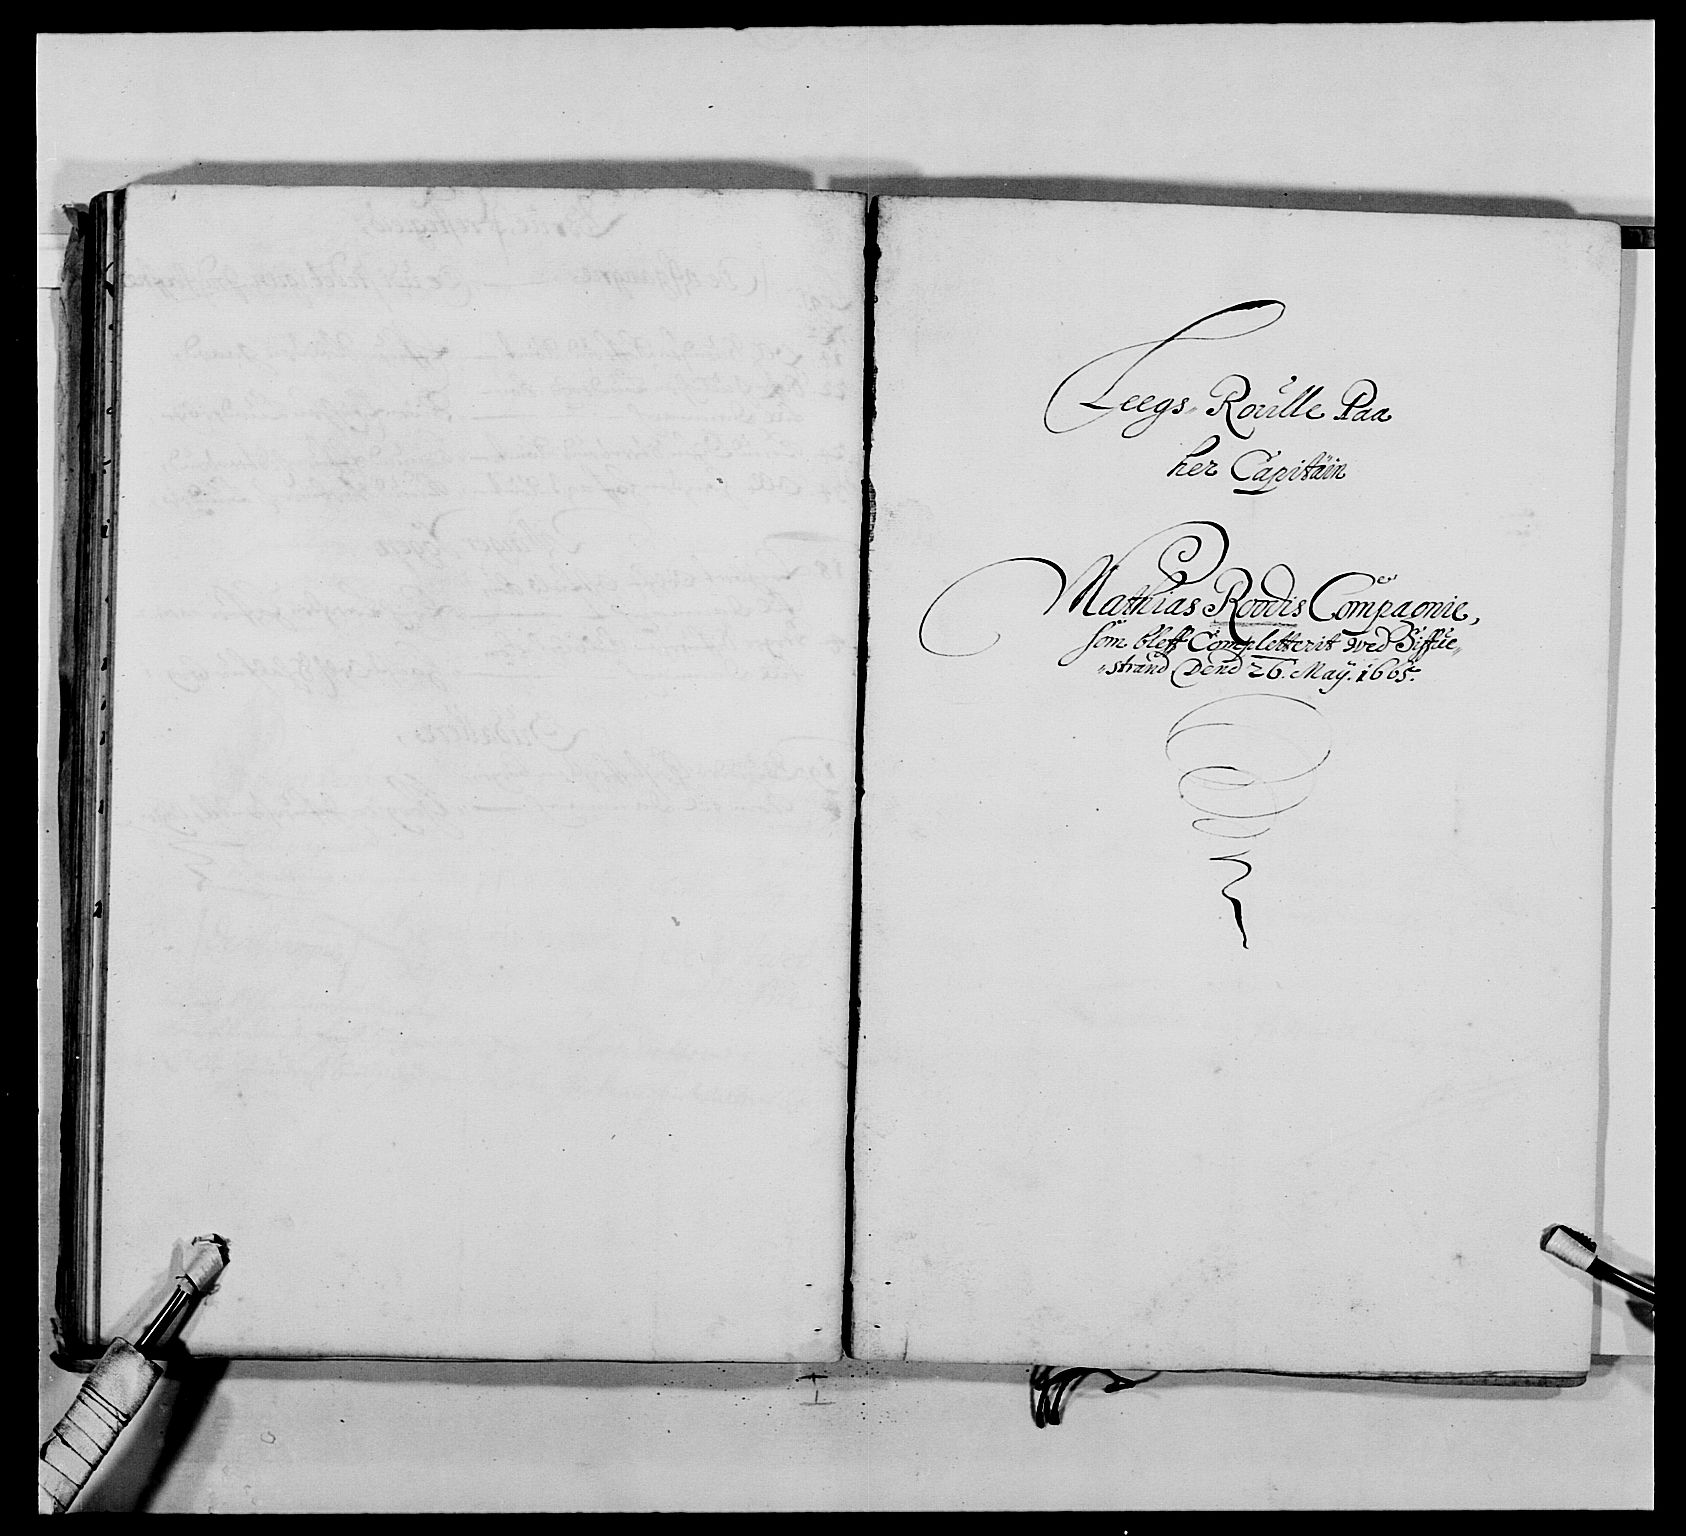 Leegs Roülle Paa
her Capitäin
Mathias Roodis Compagnie,
som bleff Completterit wed Siffüe„
„strand Dend 26. May. 1665.